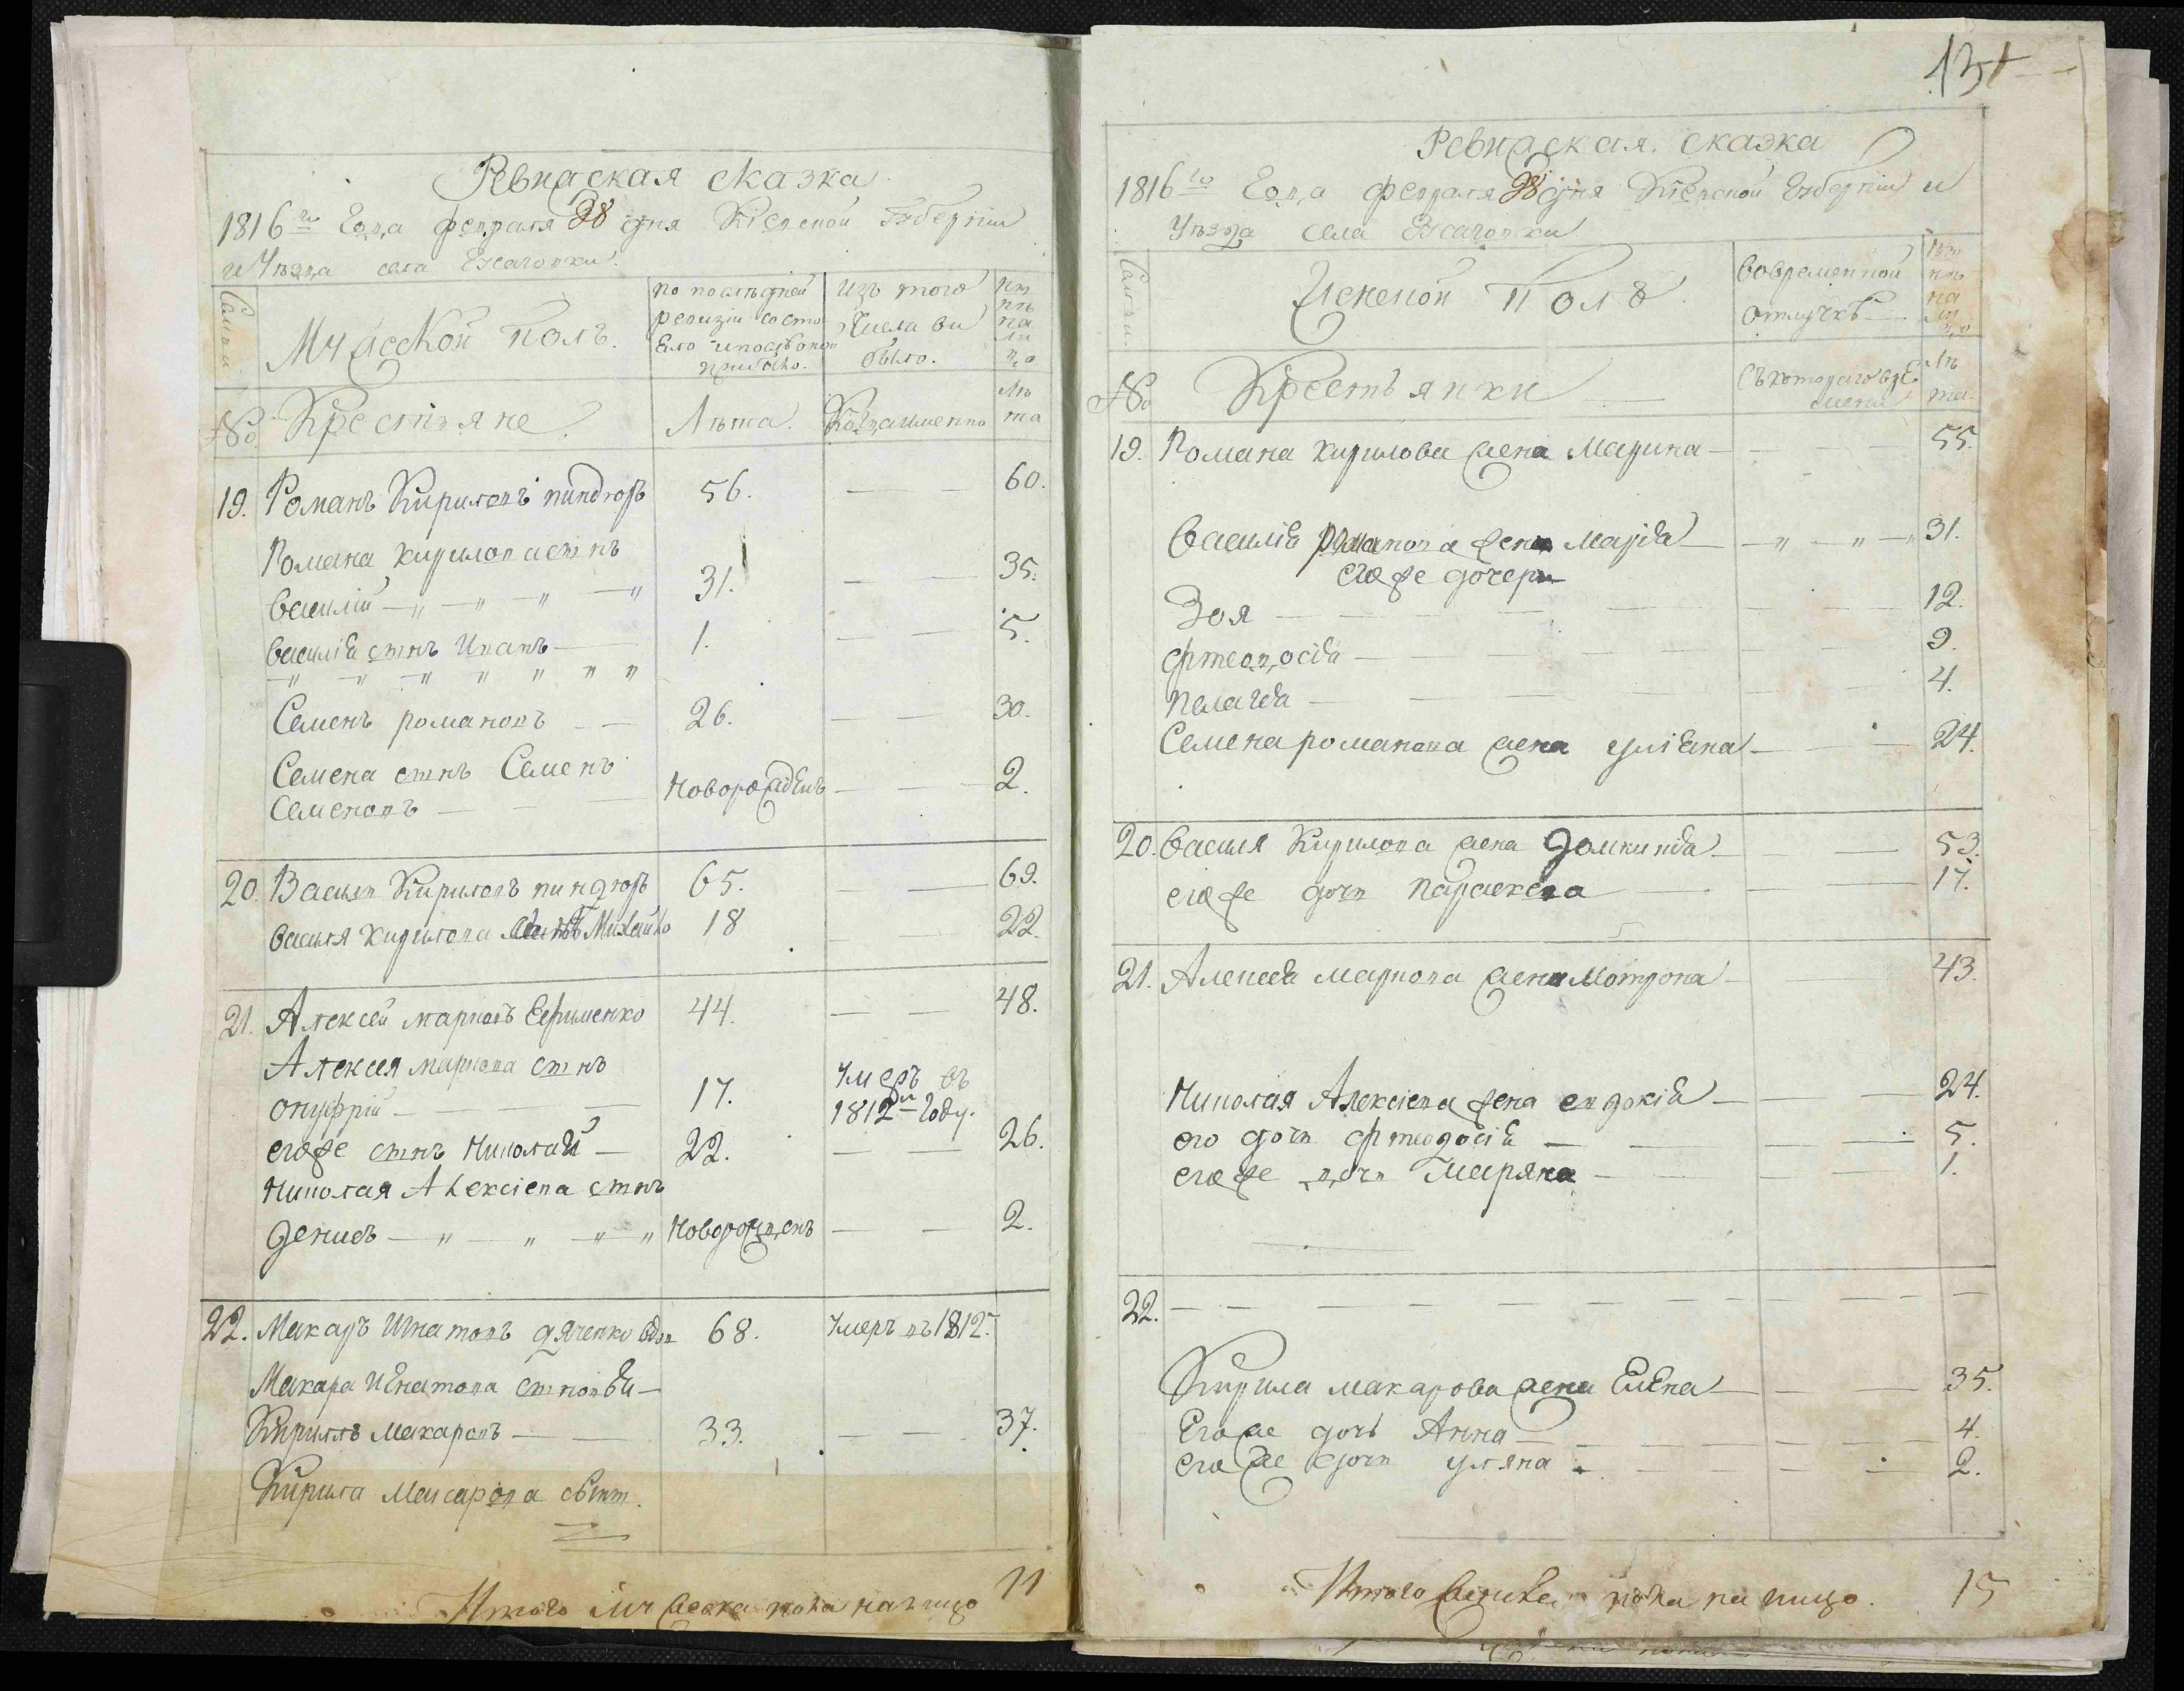 Ревизская сказка
1816го Года февраля 28 дня Кіевской Губерніи
и Уѣзда села
Мужеской полъ.
по послѣдней
ревизіи состо
яло и послѣ оной
прибыло.
изъ того
числа вы
было.
нн
нѣ
на
ли
цо
Семьи
№
Крестьяне.
Лѣта.
Когда именно
Лѣ
та
19. Романъ Кириловъ пиндюръ 56. — — 60.
Романа Кирилова сынъ
Василій — „ — „ — „ — „ 31. — — 35.
Василія сынъ Иванъ — 1. — — 5.
Семенъ романовъ — — 26. — — 30.
Семена сынъ Семенъ
Семеновъ — — — Новорожденъ — — — 2.
20. Василь Кириловъ пиндюръ 65. — — 69.
Василя Кирилова сынъ Михайло 18 — — 22.
21. Алексей марковъ Ефименко 44. — — 48.
Алексея маркова сынъ
онуфрій — — — — 17. Умеръ въ
1812м году.
егоже сынъ Николай — 22. — — 26.
Николая Алексіева сынъ
Денисъ — „ — „ — „ — „ Новорожденъ — — 2.
22. Макаръ Игнатовъ дяченко вдов 68. Умеръ въ 1812.
Макара Игнатова сыновьи —
Кирилъ Макаровъ — — 33. — — 37.
Кирила Макарова
Итого мужеска пола на лицо 11
131
Ревизская сказка
1816го Года февраля 28 дня Кіевской Губерніи и
Уѣзда села
Семьи.
Женской Полъ.
Вовременной
отлучкѣ
нн
нѣ
на
ли
цо
№
Крестьянки
Съ котораго вре
мени
Лѣ
та
19. Романа Кирилова жена Марина — — — 55.
Василія романова жена Марія — — „ — „ — „ 31.
егоже дочери
Зоя — — — — — — 12.
фтеодосія — — — — — — 9.
пелагея — — — — — — 4.
Семена романова жена уліяна — — — 24.
20. Василя Кирилова жена Домникія — — — 53.
егоже дочь параскева — — — 17.
21. Алексея маркова жена Мотрона — — — 43.
Николая Алексіева жена евдокія — — — 24.
его дочь фтеодосія — — — — 5.
егоже дочь Маряна — — — 1.
22. — — — — — — — — —
Кирила макарова жена Елена — — — 35.
Егоже дочь Анна — — — — — — 4.
егоже дочь уляна — — — — — 2.
Итого женска пола на лицо. 15